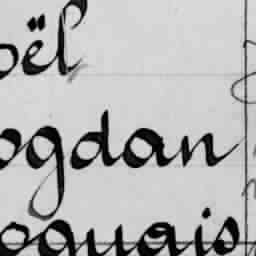 oël
ogdan
oquais